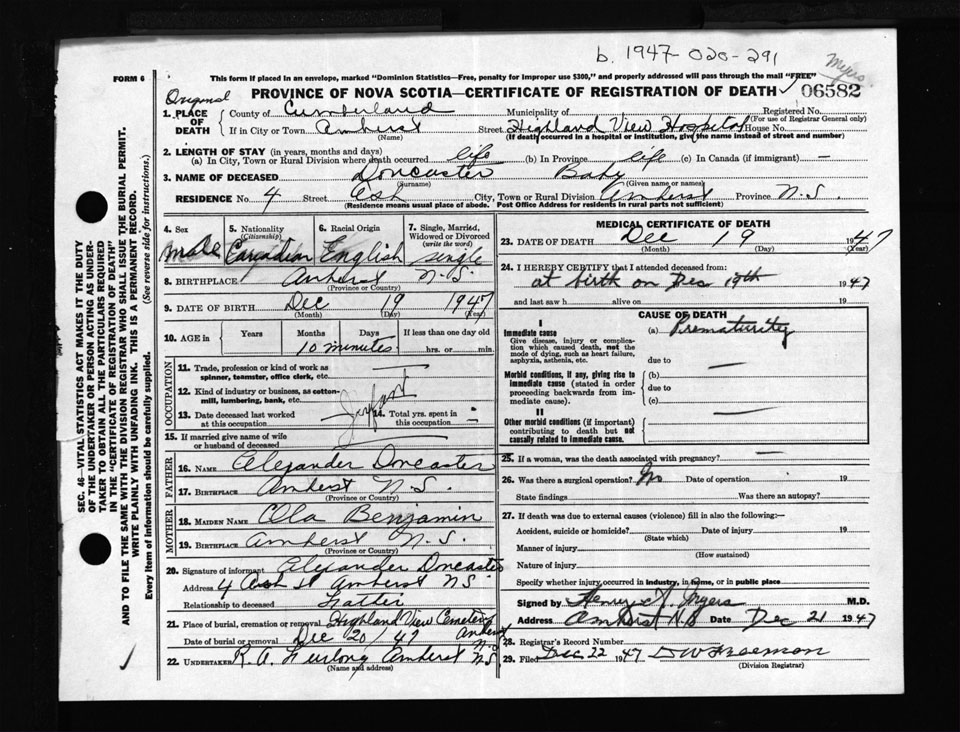 b. 1947-020-291
Myers
FORM 6
This form if placed in an envelope, marked "Dominion Statistics—Free, penalty for improper use $300," and properly addressed will pass through the mail "FREE"
PROVINCE OF NOVA SCOTIA—CERTIFICATE OF REGISTRATION OF DEATH ✓ 06582
Original
1. PLACE OF DEATH
County of Cumberland Municipality of Registered No.
(For use of Registrar General only)
If in City or Town Amherst Street Highland View Hospital House No.
(Name) (If death occurred in a hospital or institution, give the name instead of street and number)
2. LENGTH OF STAY (in years, months and days)
(a) In City, Town or Rural Division where death occurred life (b) In Province life (c) In Canada (if immigrant) —
3. NAME OF DECEASED Doncaster Baby
(Surname) (Given name or names)
RESIDENCE No. 4 Street Ash City, Town or Rural Division Amherst Province N.S.
(Residence means usual place of abode. Post Office Address for residents in rural parts not sufficient)
4. Sex 5. Nationality (Citizenship) 6. Racial Origin 7. Single, Married, Widowed or Divorced (write the word)
male Canadian English single
8. BIRTHPLACE Amherst N.S.
(Province or Country)
9. DATE OF BIRTH Dec 19 1947
(Month) (Day) (Year)
10. AGE in Years Months Days If less than one day old
10 minutes hrs. or min.
OCCUPATION
11. Trade, profession or kind of work as spinner, teamster, office clerk, etc. —
12. Kind of industry or business, as cotton-mill, lumbering, bank, etc.
Infant
13. Date deceased last worked at this occupation
14. Total yrs. spent in this occupation —
15. If married give name of wife or husband of deceased —
FATHER
16. NAME Alexander Doncaster
17. BIRTHPLACE Amherst N.S.
(Province or Country)
MOTHER
18. MAIDEN NAME Ola Benjamin
19. BIRTHPLACE Amherst N.S.
(Province or Country)
20. Signature of informant Alexander Doncaster
Address 4 Ash St Amherst NS
Relationship to deceased Father
21. Place of burial, cremation or removal Highland View Cemetery Amherst N.S.
Date of burial or removal Dec 20/47
22. UNDERTAKER R. A. Furlong Amherst N.S.
(Name and address)
MEDICAL CERTIFICATE OF DEATH
23. DATE OF DEATH Dec 19 1947
(Month) (Day) (Year)
24. I HEREBY CERTIFY that I attended deceased from:
at birth on Dec 19th 1947
and last saw h alive on 19
CAUSE OF DEATH
I
Immediate cause
Give disease, injury or complication which caused death, not the mode of dying, such as heart failure, asphyxia, asthenia, etc.
(a) Prematurity
due to —
Morbid conditions, if any, giving rise to immediate cause (stated in order proceeding backwards from immediate cause)
(b) —
due to
(c)
II
Other morbid conditions (if important) contributing to death but not causally related to immediate cause.
25. If a woman, was the death associated with pregnancy? —
26. Was there a surgical operation? No Date of operation 19
State findings Was there an autopsy?
27. If death was due to external causes (violence) fill in also the following:—
Accident, suicide or homicide? Date of injury 19
(State which)
Manner of injury
(How sustained)
Nature of injury
Specify whether injury occurred in industry, in home, or in public place
Signed by Henry A. Myers M.D.
Address Amherst N.S Date Dec 21 1947
28. Registrar's Record Number
29. Filed Dec 22 1947 D W Freeman
(Division Registrar)
SEC. 46—VITAL STATISTICS ACT MAKES IT THE DUTY
OF THE UNDERTAKER OR PERSON ACTING AS UNDER-
TAKER TO OBTAIN ALL THE PARTICULARS REQUIRED
IN THE "CERTIFICATE OF REGISTRATION OF DEATH"
AND TO FILE THE SAME WITH THE DIVISION REGISTRAR WHO SHALL ISSUE THE BURIAL PERMIT.
WRITE PLAINLY WITH UNFADING INK. THIS IS A PERMANENT RECORD.
Every item of information should be carefully supplied. (See reverse side for instructions.)
✓